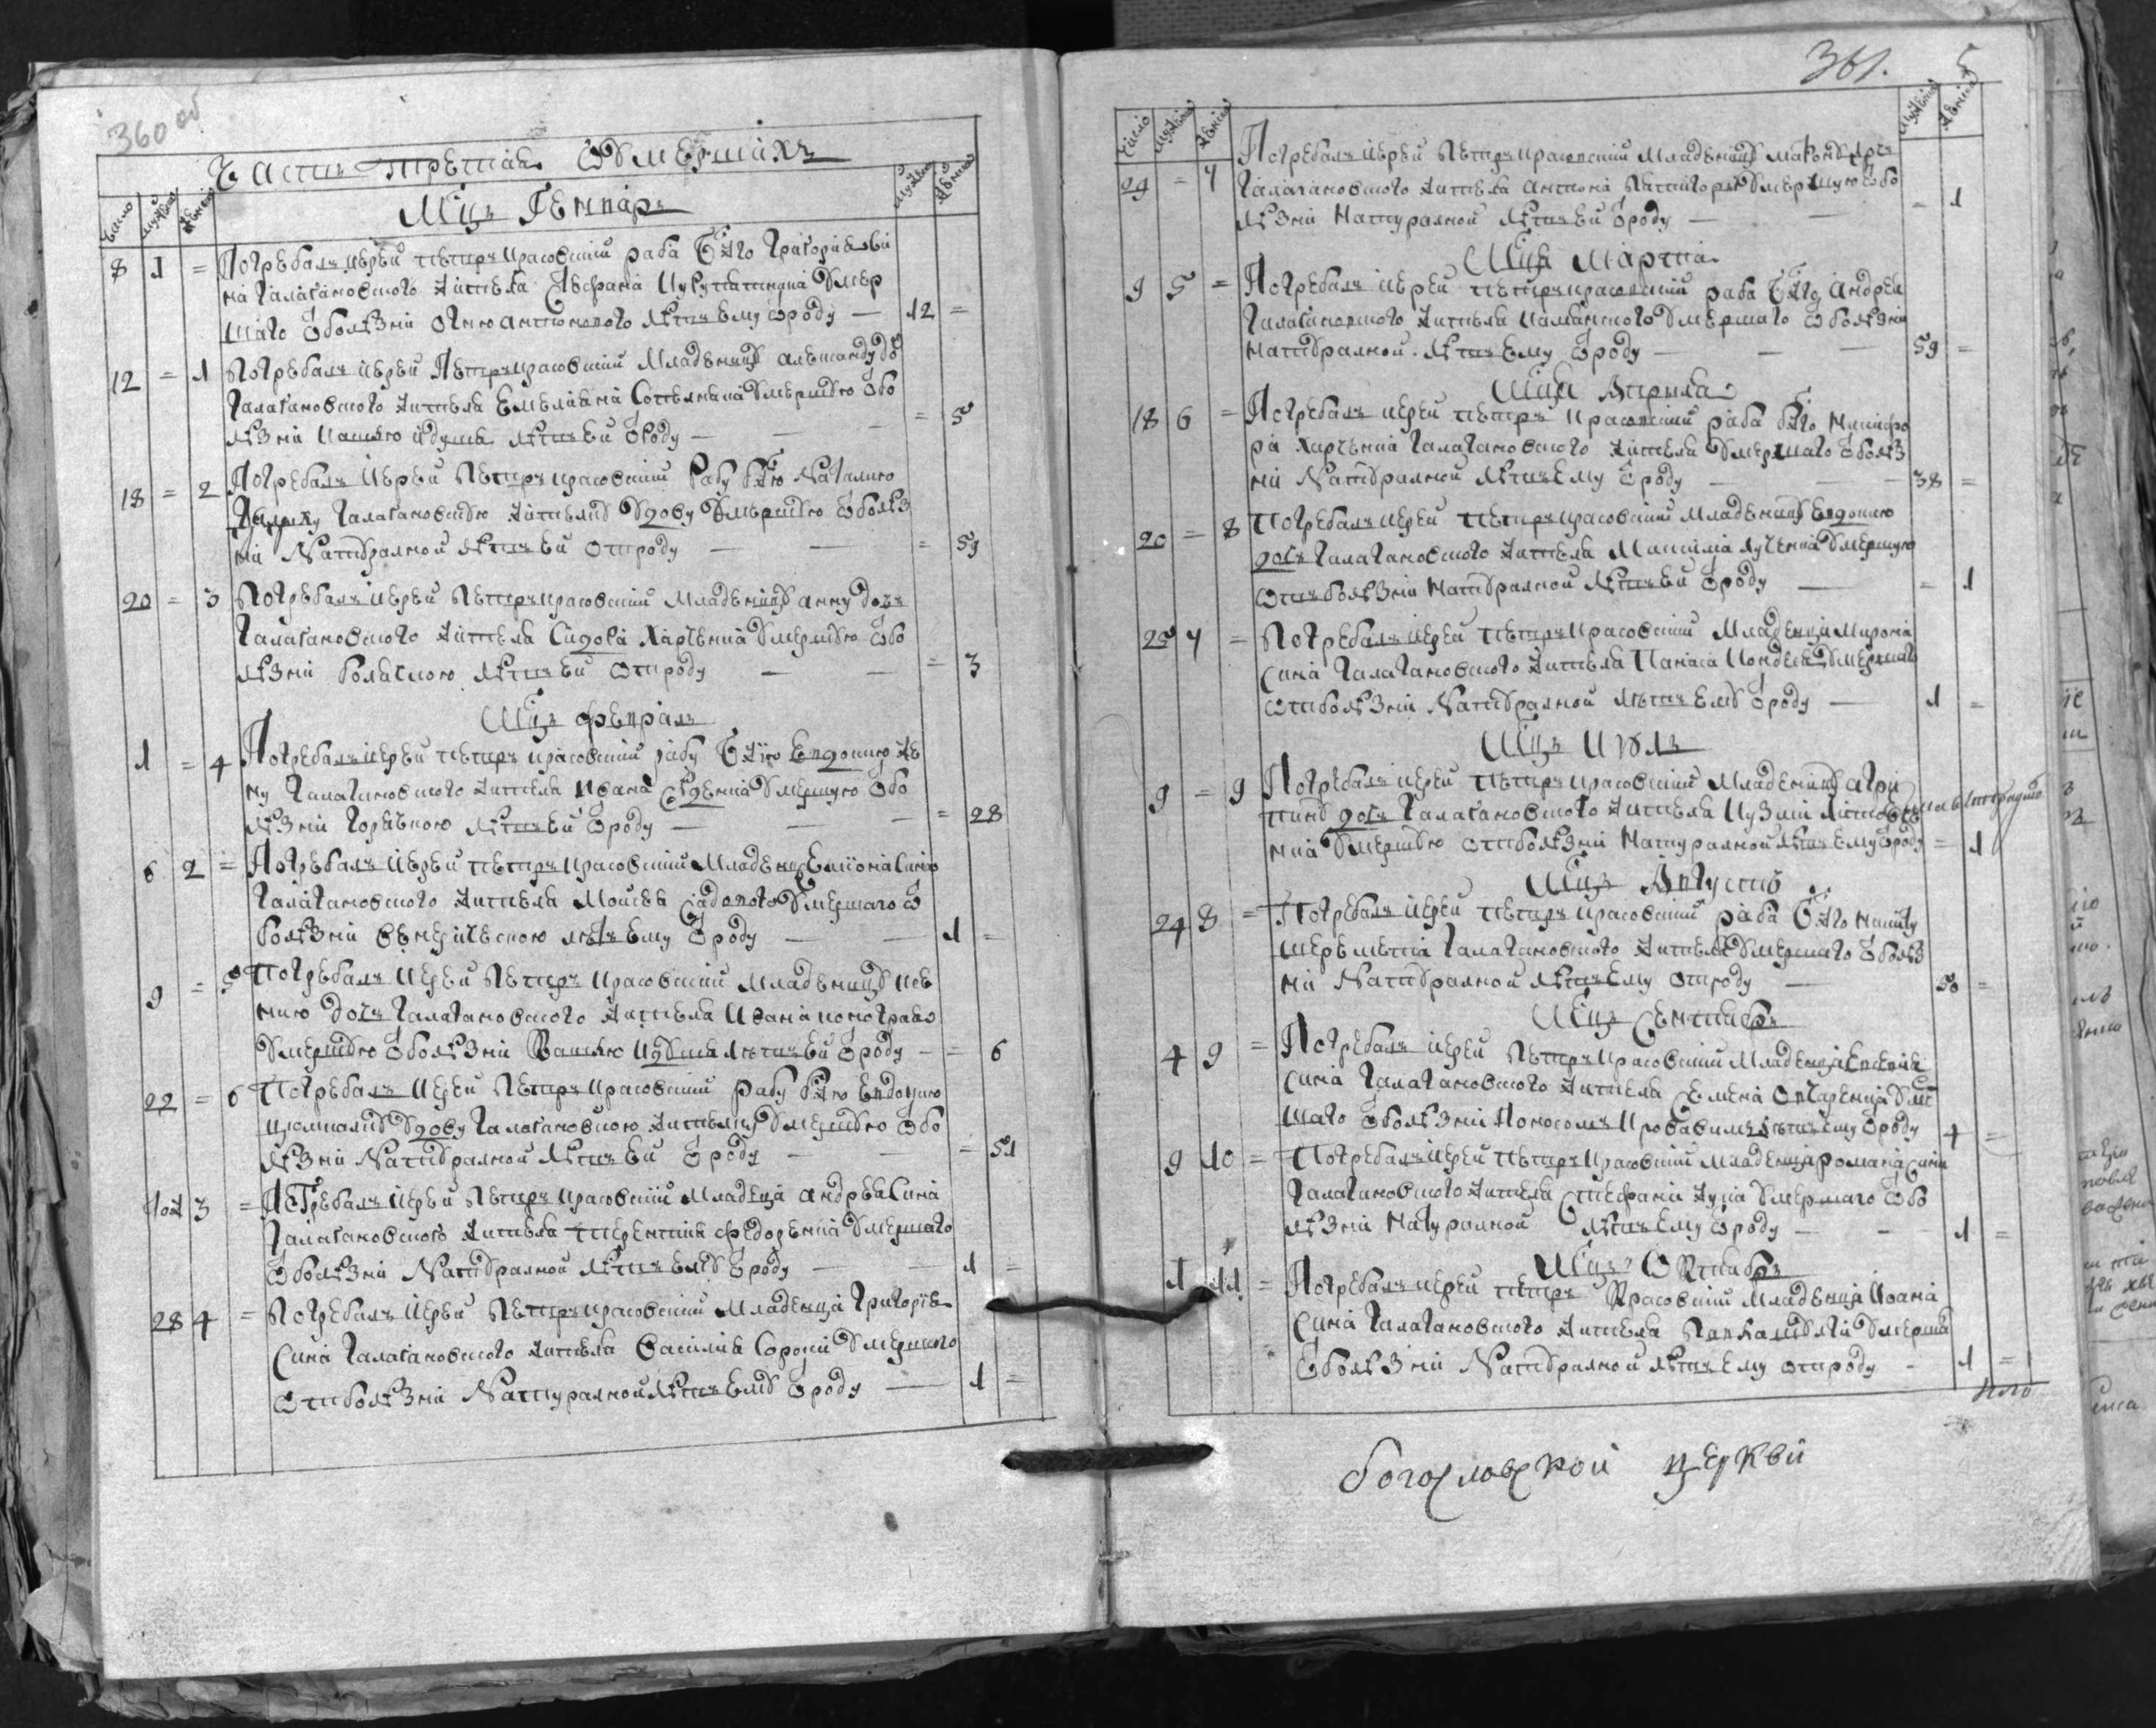 360 об
Часть третіая ѡ умершіхъ
число мужеска женска мужеска женска
Мцъ Генпаръ
8 1 = Погребалъ иерей петръ красовскій раба бжіо Григория сві
на Галагановского жителя Стефана Кукупатицка умер
шаго ѿ болѣзни огню антонового лѣтъ ему ѿроду — 12 =
12 = 1 Погребалъ иерей Петръ красовскій младеницу александу до
Галагановского жителя Емелияна Сотника умершую ѿ бо
лѣзни кашлю идуша лѣтъ ей ѿроду — — = 5
18 = 2 Погребалъ иерей Петръ красовскій рабу бжію Наталию
Галагановскую жителку вдову умершую ѿ болѣз
ни натуралной лѣтъ ей отроду — — = 59
20 = 3 Погребалъ иерей Петръ красовскій младеницу анну дочъ
Галагановского жителя Сидора Харченка умершую ѿ бо
лѣзни болачною лѣтъ ей отроду — — = 3
Мцъ февралъ
1 = 4 Погребалъ иерей петръ красовскій рабу бжію Евдокию же
ну Галагановского жителя ивана Суденка умершую ѿ бо
лѣзни горячною лѣтъ ей ѿроду — — = 28
6 2 = Погребалъ иерей петръ красовскій младенца Симона сина
Галагановского жителя Моисея Садового умершаго ѿ
болѣзни венерическою лѣтъ ему ѿроду — — 1 =
9 = 5 Погребалъ иерей Петръ красовскій младеницу ксе
нию дочъ Галагановского жителя ивана коноправо
умершую ѿ болѣзни кашлю идуша лѣтъ ей ѿроду — = 6
22 = 6 Погребалъ иерей Петръ красовскій рабу бжію Евдокию
вдову Галагановскою жителку умершую ѿ бо
лѣзни натуралной лѣтъ ей ѿроду — — = 51
тож 3 = Погребалъ иерей Петръ красовскій младеца андрея сина
Галагановского жителя терентия федоренка умершаго
ѿ болѣзни натуралной лѣтъ ему ѿроду — — 1 =
28 4 = Погребалъ иерей Петръ красовскій младенца григория
сина Галагановского жителя василия сороки умершаго
отъ болѣзни натуралной лѣтъ ему ѿроду — 1 =
361. 5
число мужеска женска мужеска женска
29 = 7 Погребалъ иерей Петръ красовскій младеницу
Галагановского жителя антона умершую ѿ бо
лѣзни натуралной лѣтъ ей ѿроду — — = 1
Мца Марта
9 5 = Погребалъ иерей петръ красовскій раба бжіо андрея
Галагановского жителя калканского умершаго ѿ болѣзни
натуралной лѣтъ ему ѿроду — — — 59 =
Мца Априля
18 6 = Погребалъ иерей петръ красовскій раба бжіо никифо
ра харченка Галагановского жителя умершаго ѿ болѣз
ни натуралной лѣтъ ему ѿроду — — 38 =
20 = 8 Погребалъ иерей петръ красовскій младеницу Евдокию
дочъ Галагановского жителя максима луценка умершую
отъ болѣзни натуралной лѣтъ ей ѿроду — = 1
25 7 = Погребалъ иерей петръ красовскій младенца мирона
сина Галагановского жителя панаса умершаго
отъ болѣзни натуралной лѣтъ ему ѿроду — 1 =
Мцъ июль
9 = 9 Погребалъ иерей петръ красовскій младеницу агри
пину дочъ Галагановского жителя кузми литовче
нка умершую отъ болѣзни натуралной лѣтъ ему ѿроду = 1
Мцъ августъ
24 8 = Погребалъ иерей петръ красовскій раба бжіо никиту
шеремета Галагановского жителя умершаго ѿ болѣз
ни натуралной лѣтъ ему отроду — 50 =
Мцъ Сентиабръ
4 9 = Погребалъ иерей Петръ красовскій младенца
сина Галагановского жителя Семена овчаренка умер
шаго ѿ болѣзни поносомъ кровавимъ лѣтъ ему ѿроду 4 =
9 10 = Погребалъ иерей петръ красовскій младенца романа сина
Галагановского жителя Стефана жука умершаго ѿ бо
лѣзни натуралной лѣтъ ему ѿроду — — 1 =
Мцъ Октиабръ
1 11 = Погребалъ иерей петръ красовскій младенца иоана
сина Галагановского жителя умерша
ѿ болѣзни натуралной лѣтъ ему отроду — 1 =
богословской церкви